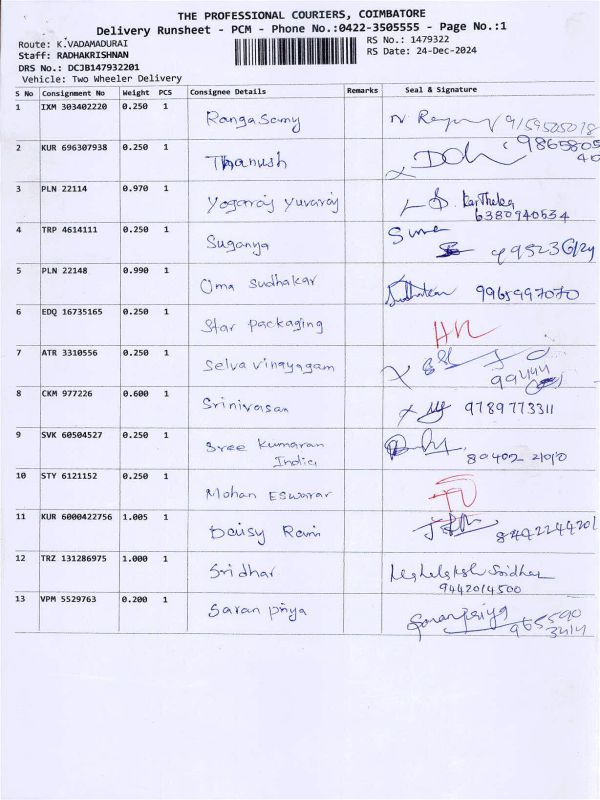 THE PROFESSIONAL COURIERS, COIMBATORE
Delivery Runsheet - PCM - Phone No.:0422-3505555 - Page No.:1
Route: K.VADAMADURAI
RS No.: 1479322
Staff: RADHAKRISHNAN
RS Date: 24-Dec-2024
DRS No.: DCJB147932201
Vehicle: Two Wheeler Delivery
S No Consignment No Weight PCS Consignee Details Remarks Seal & Signature
1 IXM 303402220 0.250 1 Rangasamy 9159505018
2 KUR 696307938 0.250 1 Thanush 9865805
40
3 PLN 22114 0.970 1 Yogaraj Yuvaraj Kartheka
6380940534
4 TRP 4614111 0.250 1 Suganya
5 PLN 22148 0.990 1 Oma Sudhakar Sudhakar 9965997070
6 EDQ 16735165 0.250 1 Star packaging
7 ATR 3310556 0.250 1 Selva vinayagam
99444
8 CKM 977226 0.600 1 Srinivasan 9789773311
9 SVK 60504527 0.250 1 Sree Kumaran
India 80402 21010
10 STY 6121152 0.250 1 Mohan Eswarar
11 KUR 6000422756 1.005 1 Daisy Rani 8442244201
12 TRZ 131286975 1.000 1 Sridhar Sridhar
9442014500
13 VPM 5529763 0.200 1 Saran priya Saranpriya
965590
3414